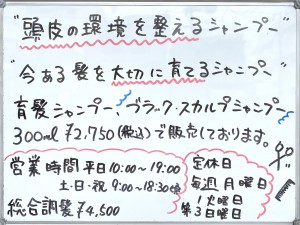 "頭皮の環境を整えるシャンプー"
"今ある髪を大切に育てるシャンプー"
育髪シャンプー、ブラック・スカルプシャンプー
300ml ¥2,750(税込)で販売しております。
営業時間 平日10:00〜19:00
土・日・祝 9:00〜18:30
総合調髪 ¥4,500
定休日
毎週月曜日
第1火曜日
第3日曜日